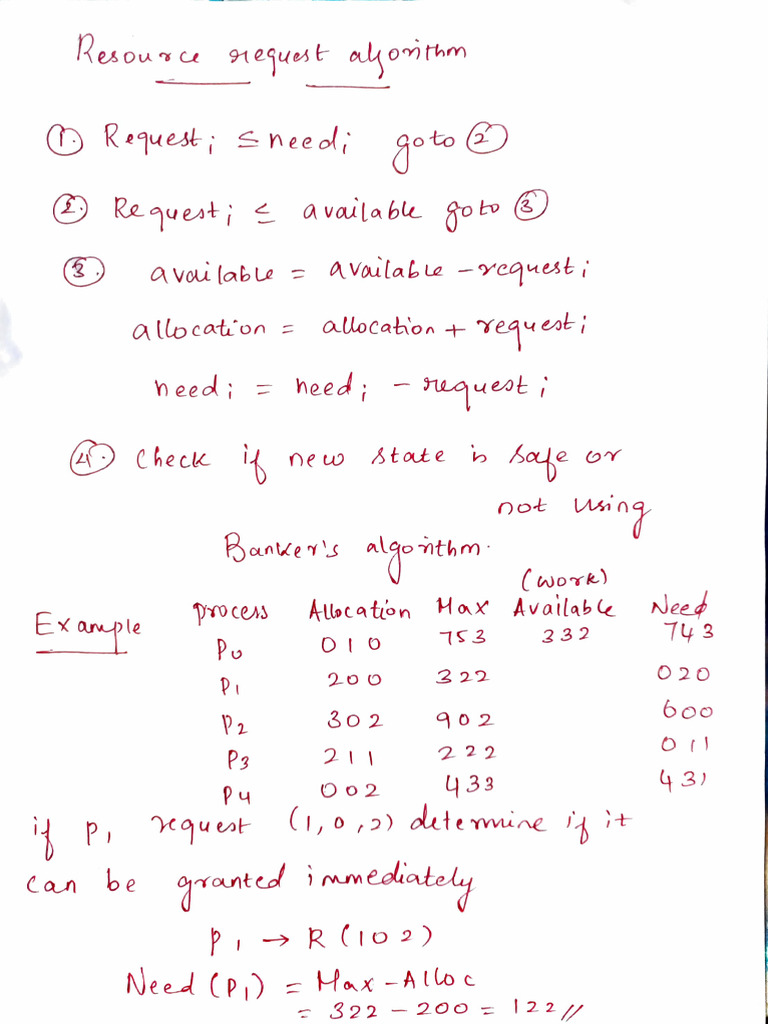 Resource request algorithm
①. Requestᵢ ≤ needᵢ goto ②
②. Requestᵢ ≤ available goto ③
③. available = available - requestᵢ
allocation = allocation + requestᵢ
needᵢ = needᵢ - requestᵢ
④. check if new state is safe or
not using
Banker's algorithm.
(work)
Example Process Allocation Max Available Need
P0 0 1 0 7 5 3 3 3 2 7 4 3
P1 2 0 0 3 2 2 0 2 0
P2 3 0 2 9 0 2 6 0 0
P3 2 1 1 2 2 2 0 1 1
P4 0 0 2 4 3 3 4 3 1
if P1 request (1,0,2) determine if it
can be granted immediately
P1 → R (1 0 2)
Need (P1) = Max - Alloc
= 322 - 200 = 122 //